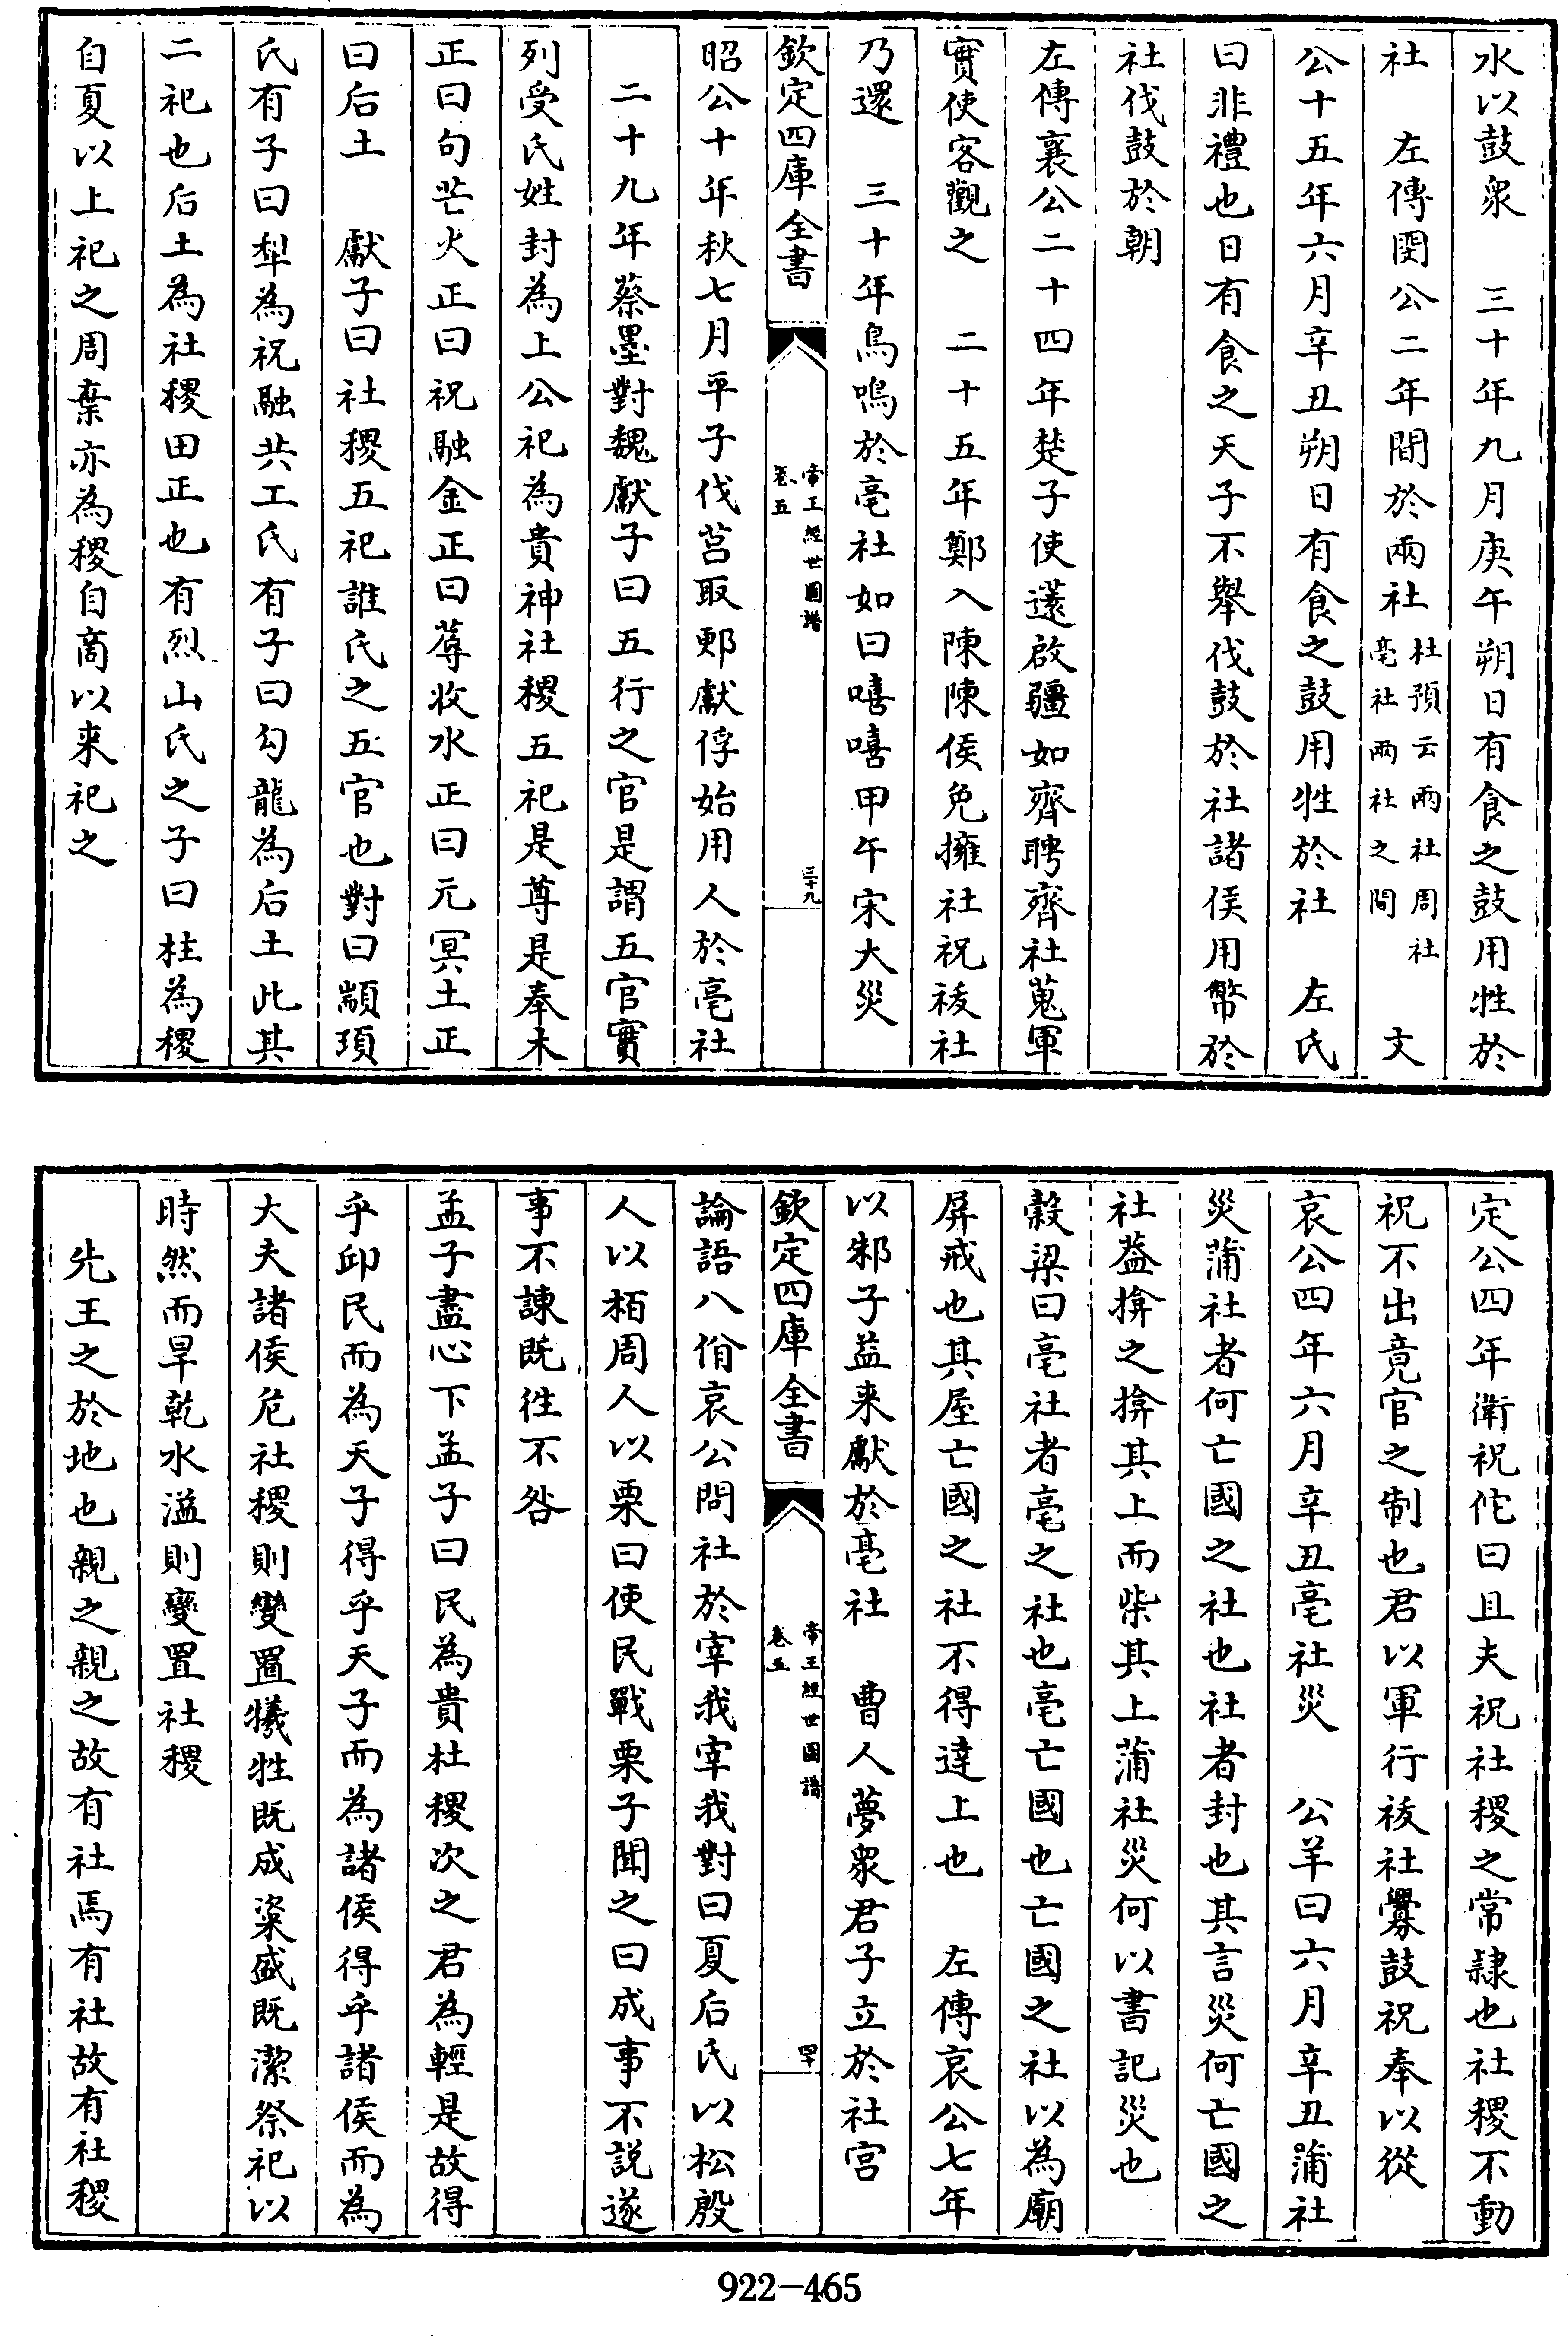 水以鼓衆　三十年九月庚午朔日有食之鼓用牲於
社　左傳閔公二年間於兩社杜預云兩社周社亳社兩社之間　文
公十五年六月辛丑朔日有食之鼓用牲於社　左氏
曰非禮也日有食之天子不舉伐鼓於社諸侯用幣於
社伐鼓於朝
左傳襄公二十四年楚子使薳啟疆如齊聘齊社蒐軍
實使客觀之　二十五年鄭入陳陳侯免擁社祝祓社
乃還　三十年鳥鳴於亳社如曰嘻嘻甲午宋大災
欽定四庫全書
帝王經世圖譜
卷五
三十九
昭公十年秋七月平子伐莒取郠獻俘始用人於亳社
二十九年蔡墨對魏獻子曰五行之官是謂五官實
列受氏姓封為上公祀為貴神社稷五祀是尊是奉木
正曰句芒火正曰祝融金正曰蓐收水正曰元冥土正
曰后土　獻子曰社稷五祀誰氏之五官也對曰顓頊
氏有子曰犁為祝融共工氏有子曰勾龍為后土此其
二祀也后土為社稷田正也有烈山氏之子曰柱為稷
自夏以上祀之周棄亦為稷自商以来祀之
定公四年衛祝佗曰且夫祝社稷之常隸也社稷不動
祝不出竟官之制也君以軍行祓社釁鼓祝奉以從
哀公四年六月辛丑亳社災　公羊曰六月辛丑蒲社
災蒲社者何亡國之社也社者封也其言災何亡國之
社葢揜之揜其上而柴其上蒲社災何以書記災也
榖梁曰亳社者亳之社也亳亡國也亡國之社以為廟
屏戒也其屋亡國之社不得達上也　左傳哀公七年
以邾子益来獻於亳社　曹人夢衆君子立於社宫
欽定四庫全書
帝王經世圖譜
卷五
四十
論語八佾哀公問社於宰我宰我對曰夏后氏以松殷
人以栢周人以栗曰使民戰栗子聞之曰成事不說遂
事不諫既徃不咎
孟子盡心下孟子曰民為貴社稷次之君為輕是故得
乎邱民而為天子得乎天子而為諸侯得乎諸侯而為
大夫諸侯危社稷則變置犧牲既成粢盛既潔祭祀以
時然而旱乾水溢則變置社稷
先王之於地也親之親之故有社焉有社故有社稷
922-465